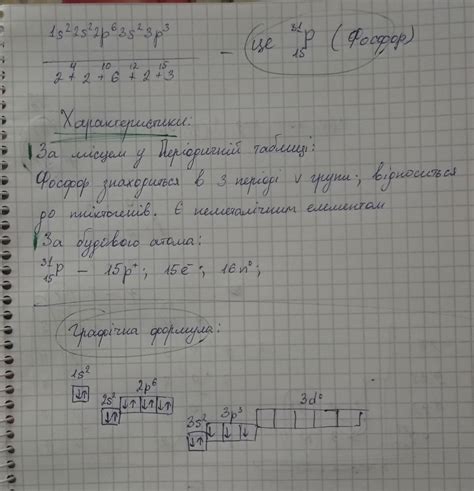 1s² 2s² 2p⁶ 3s² 3p³ – це ³¹₁₅P (Фосфор)
4 10 12 15
2 + 2 + 6 + 2 + 3
Характеристики:
За місцем у Періодичній таблиці:
Фосфор знаходиться в 3 періоді V групи; відноситься
до пніктогенів. Є неметалічним елементом
За будовою атома:
³¹₁₅P – 15p⁺; 15ē; 16n⁰;
Графічна формула:
1s²
↓↑
2s² 2p⁶
↓↑ ↓↑ ↓↑ ↓↑
3s² 3p³ 3d⁰
↓↑ ↓ ↓ ↓